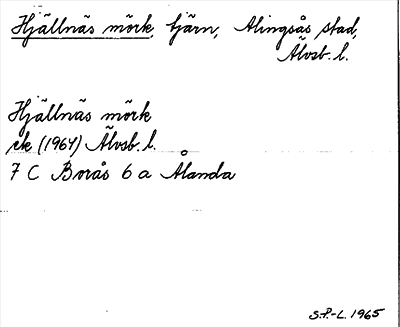 Hjällnäs mörk, tjärn, Alingsås stad,
Älvsb. l.
Hjällnäs mörk
ek (1964) Älvsb. l.
7 C Borås 6 a Ålanda
S.P.-L. 1965